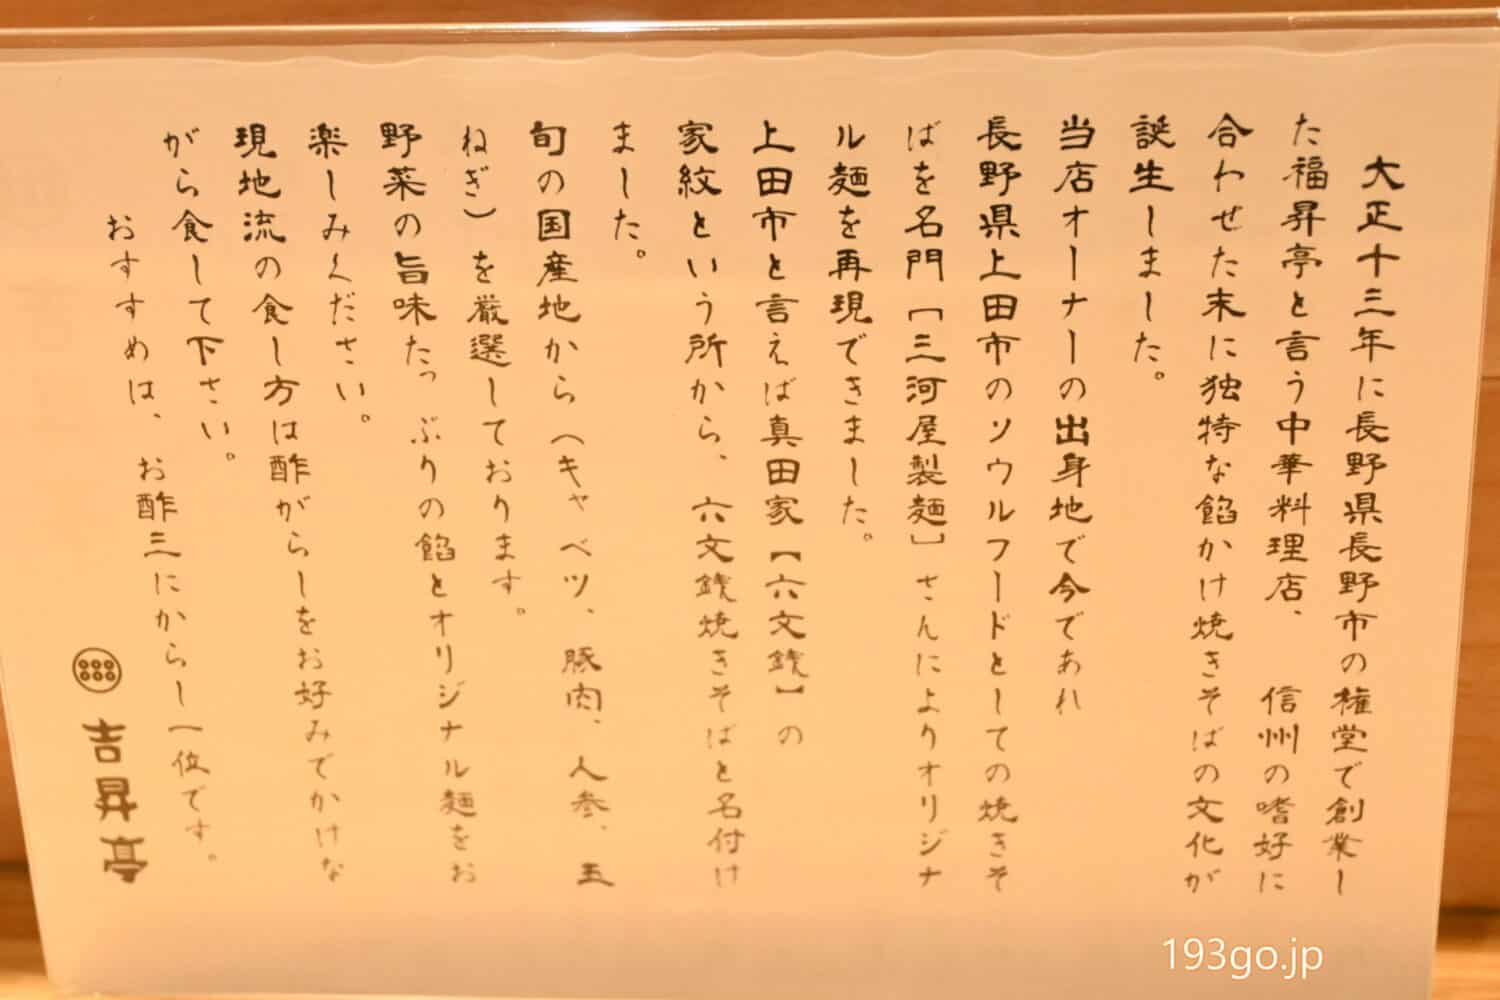 大正十三年に長野県長野市の権堂で創業し
た福昇亭と言う中華料理店、信州の嗜好に
合わせた末に独特な餡かけ焼きそばの文化が
誕生しました。
当店オーナーの出身地で今であれ
長野県上田市のソウルフードとしての焼きそ
ばを名門[三河屋製麺]さんによりオリジナ
ル麺を再現できました。
上田市と言えば真田家【六文銭】の
家紋という所から、六文銭焼きそばと名付け
ました。
旬の国産地から(キャベツ、豚肉、人参、玉
ねぎ)を厳選しております。
野菜の旨味たっぷりの餡とオリジナル麺をお
楽しみください。
現地流の食し方は酢がらしをお好みでかけな
がら食して下さい。
おすすめは、お酢三にからし一位です。
吉昇亭
193go.jp